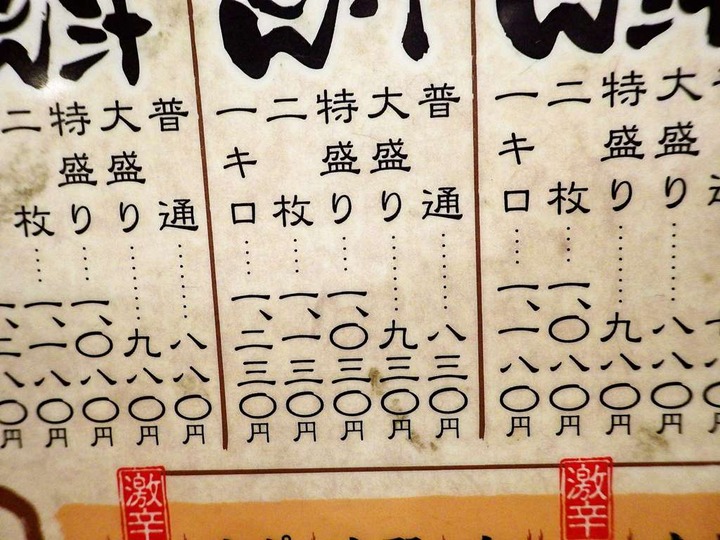 大盛り……八八〇円
特盛り……九八〇円
二枚……一、〇八〇円
一キロ……一、一八〇円
普通……八三〇円
大盛り……九三〇円
特盛り……一、〇三〇円
二枚……一、一三〇円
一キロ……一、二三〇円
普通……八八〇円
大盛り……九八〇円
特盛り……一、〇八〇円
二枚……一、一八〇円
一、二八〇円
激辛
激辛